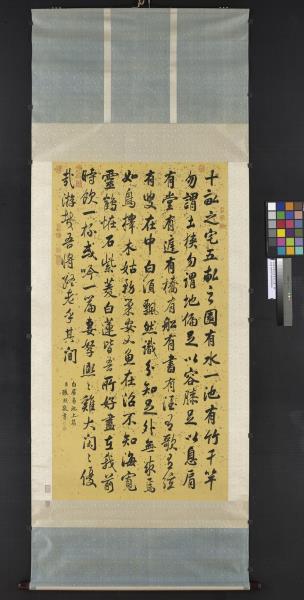 十畝之宅五畝之園有水一池有竹千竿
勿謂土狹勿謂地偏足以容膝足以息肩
有堂有庭有橋有船有書有酒有歌有弦
有叟在中白須飄然識分知足外無求焉
如鳥擇木姑務巢安如魚在沼不知海寬
靈鶴怪石紫菱白蓮皆吾所好盡在我前
時飲一杯或吟一篇妻孥熙〻雞犬閑〻優
哉游哉吾將終老乎其間
白居易池上篇
張照敬書